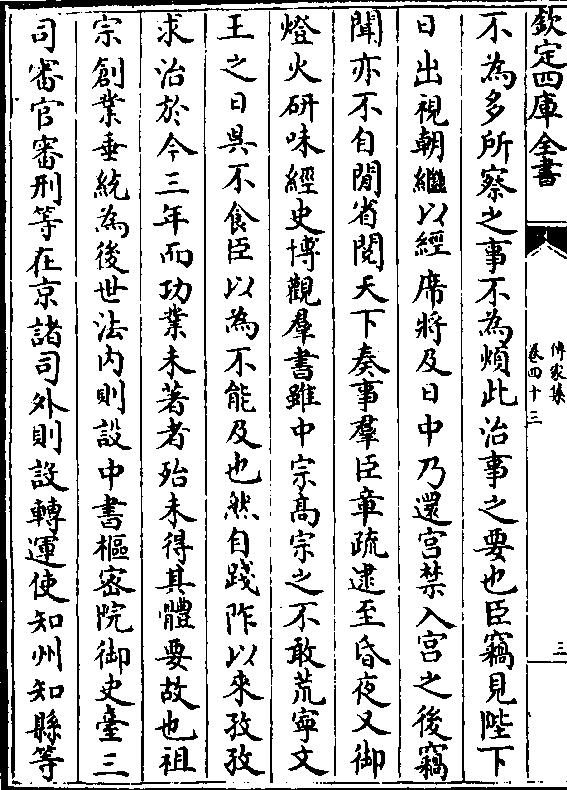 欽定四庫全書
傳家集
卷四十三
三
不為多所察之事不為煩此治事之要也臣竊見陛下
日出視朝繼以經席將及日中乃還宮禁入宮之後竊
聞亦不自閒省閱天下奏事羣臣章疏逮至昏夜又御
燈火研味經史博觀羣書雖中宗髙宗之不敢荒寧文
王之日昃不食臣以為不能及也然自踐阼以來孜孜
求治於今三年而功業未著者殆未得其體要故也祖
宗創業垂統為後世法內則設中書樞密院御史臺三
司審官審刑等在京諸司外則設轉運使知州知縣等